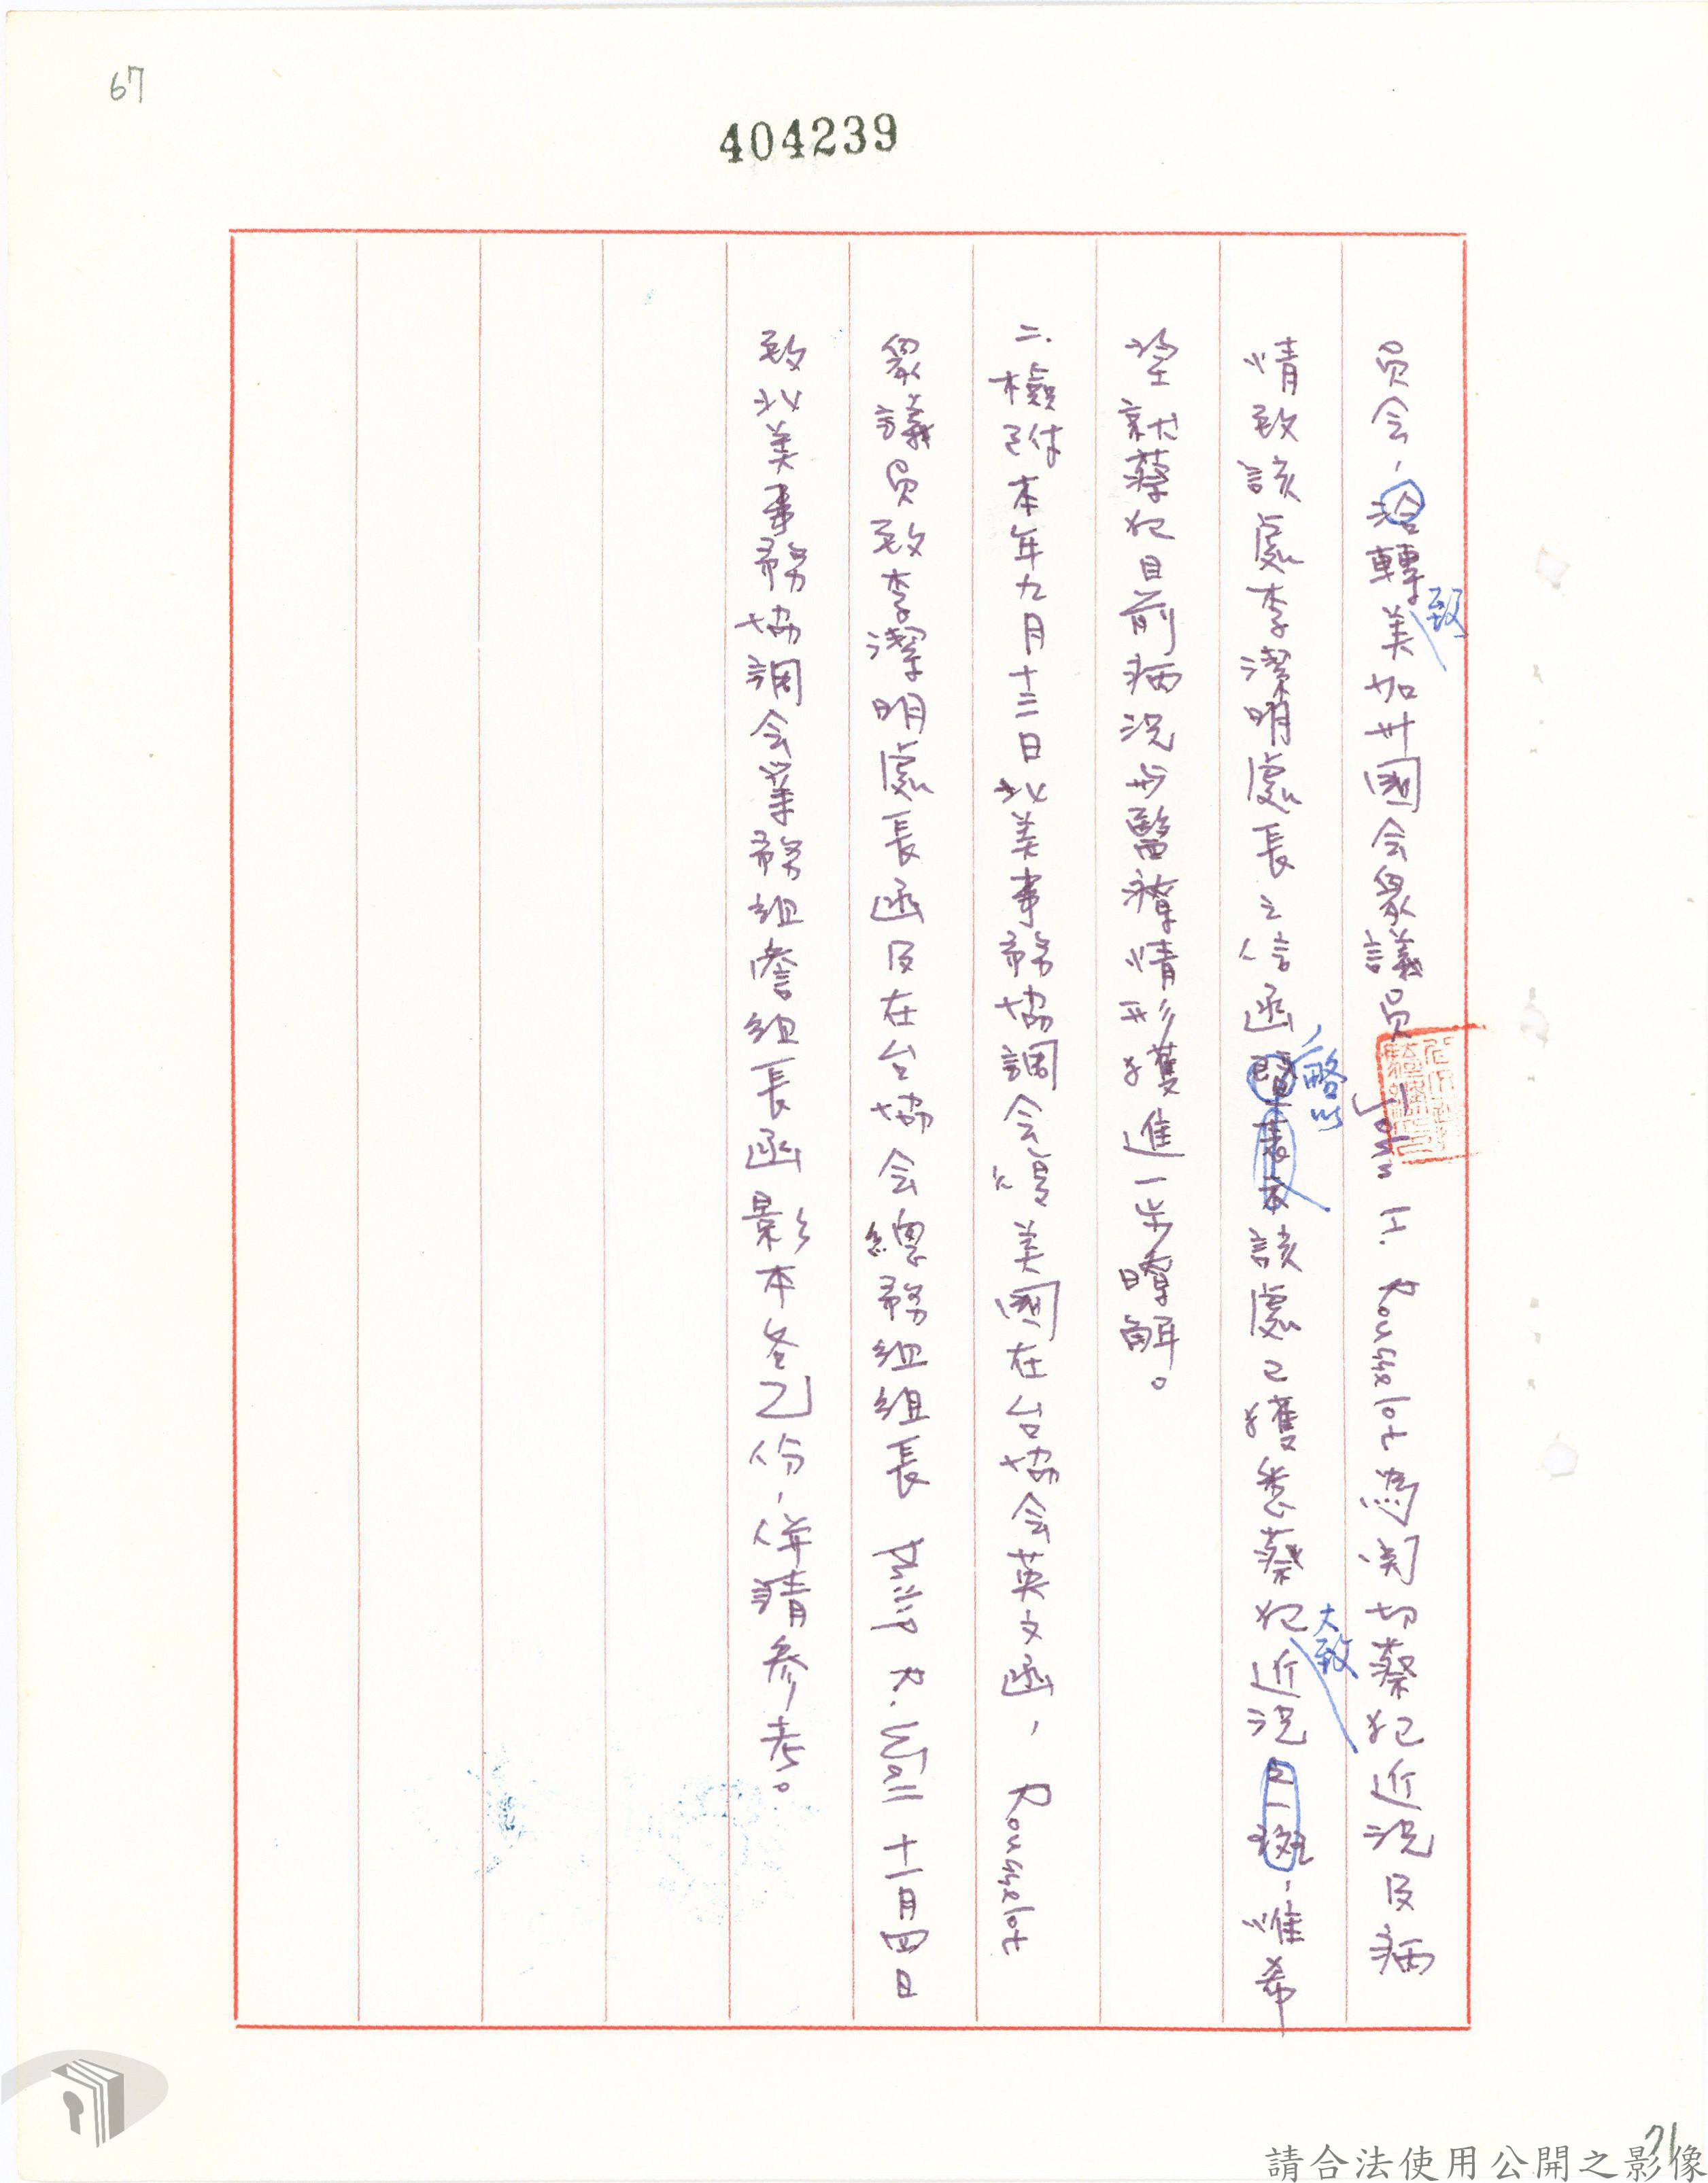 67
404239
員会,洽轉致美加卅國会眾議員 John H. Rousselot 為関切蔡犯近況及病
情致該處李潔明處長之信函略以該處已獲悉蔡犯大致近況已一斑,惟希
望就蔡犯目前病況与醫療情形獲進一步瞭解。
二.檢附本年九月十三日北美事務協調会復美國在台協会英文函, Rousselot
眾議員致李潔明處長函及在台協会總務組組長 Philip R. Wall 十一月四日
致北美事務協調会業務組詹組長函影本各乙份,併請參考。
71
請合法使用公開之影像